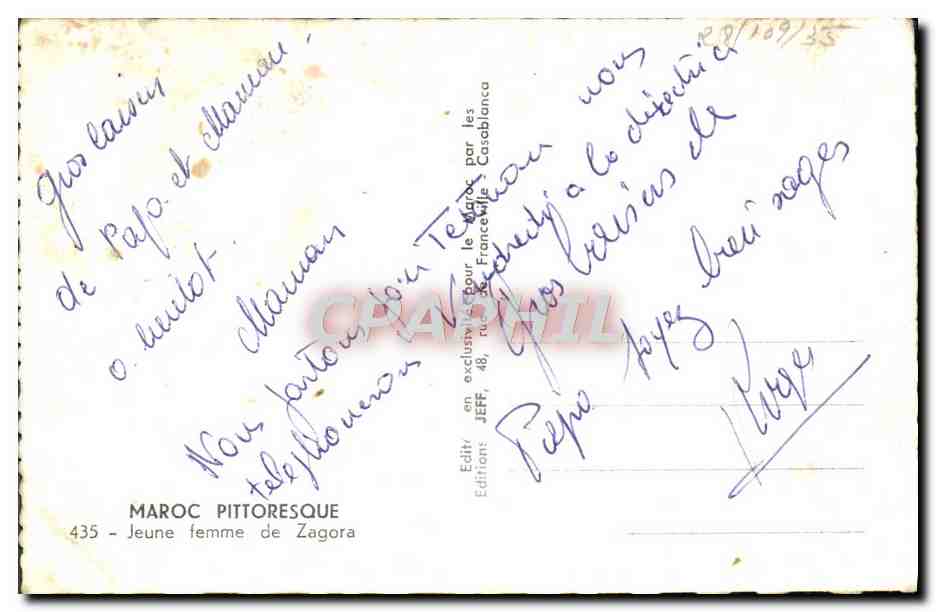 Gros baisers
de Papa et Maman.
a bientot.
Maman
Nous partons pour Tetouan nous
telephonerons Vendredi a la directrice
Gros baisers de
Papa soyez bien sages
R8/109/35
Edité en exclusivité pour le Maroc par les
Editions JEFF, 48, rue de Franceville - Casablanca
CPAPHIL
MAROC PITTORESQUE
435 - Jeune femme de Zagora